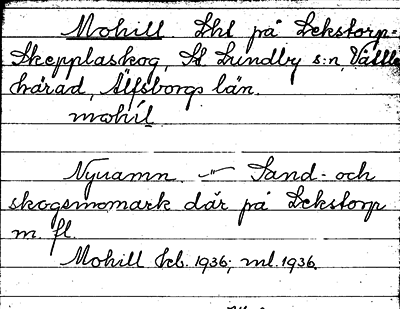 Mohill. Lht på Lekstorp-
Skepplaskog, St. Lundby s:n, Vättle
härad, Älfsborgs län.
mohil
Nynamn. –"– Sand- och
skogsmomark där på Lekstorp
m. fl.
Mohill kb. 1936; ml. 1936.